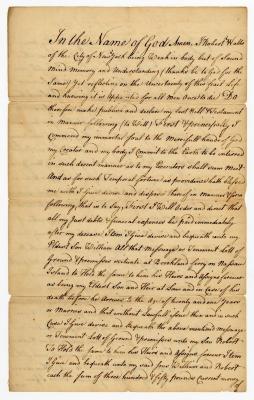 In the Name of God Amen. I Robert Walls
of the City of New York being Weak in body but of Sound
Mind Memory and Understanding (thanks be to God for the
Same) Yet reflecting on the Uncertainty of this frail Life
and knowing it is Appointed for all Men Once to die Do
therefore make publish and declare my last Will & Testament
in Manner following (to Wit) First & principally I
Commend my immortal Soul to the Mercifull hands of God
my Creator and my body I Commit to the Earth to be interred
in such decent manner as to my Executors shall seem Meet
And as for such Temporal fortune as providence hath blessed
me with I Give devise and dispose thereof in Manner
following that is to Say, First I Will Order and direct that
all my just debts & funeral expences be paid immediately
after my decease Item I give devise and bequeath unto my
Eldest Son William All that Messuage or Tenement Lott of
Ground & premisses situate at Brookland Ferry on Nassau
Island to Hold the same to him his Heirs and Assigns forever
as being my Eldest Son and Heir at Law and in Case of his
death before he Arrives to the Age of twenty and one Years
or Marries and that without Lawfull Issue then and in such
Case I Give devise and bequeath the above mentioned Messuage
or Tenement Lott of Ground & premisses unto my Son Robert
To Hold the same to him his Heirs and Assigns forever Item
I Give and bequeath unto my said Sons William and Robert
each the sum of three hundred & fifty pounds Current money